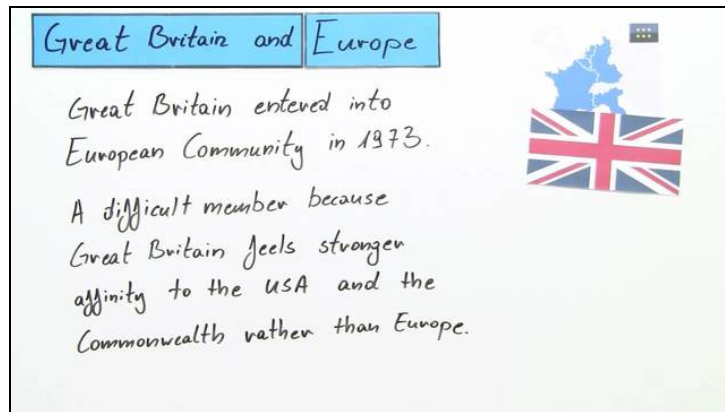 Great Britain and Europe
Great Britain entered into
European Community in 1973.
A difficult member because
Great Britain feels stronger
affinity to the USA and the
Commonwealth rather than Europe.